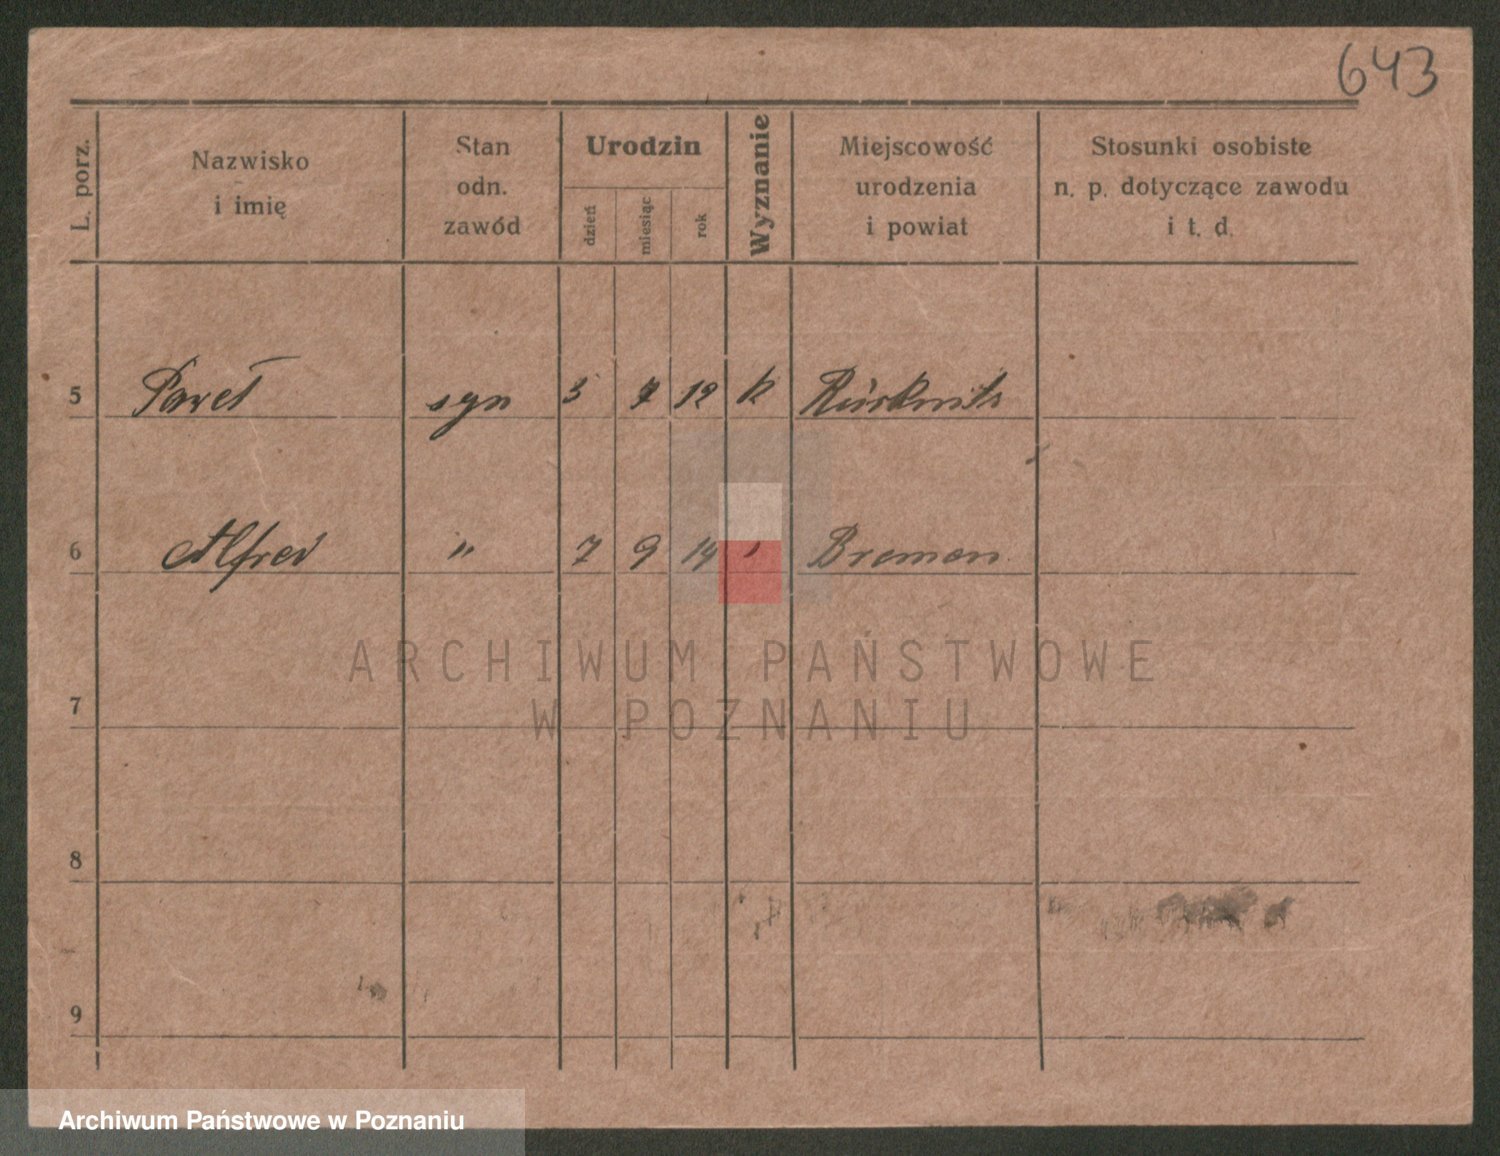 643
L. porz.
Nazwisko
i imię
Stan
odn.
zawód
Urodzin
dzień
miesiąc
rok
Wyznanie
Miejscowość
urodzenia
i powiat
Stosunki osobiste
n. p. dotyczące zawodu
i t. d.
5 Paweł syn 3 7 12 k
6 Alfred " 7 9 14 " Bremen
7
8
9
ARCHIWUM PAŃSTWOWE
W POZNANIU
Archiwum Państwowe w Poznaniu